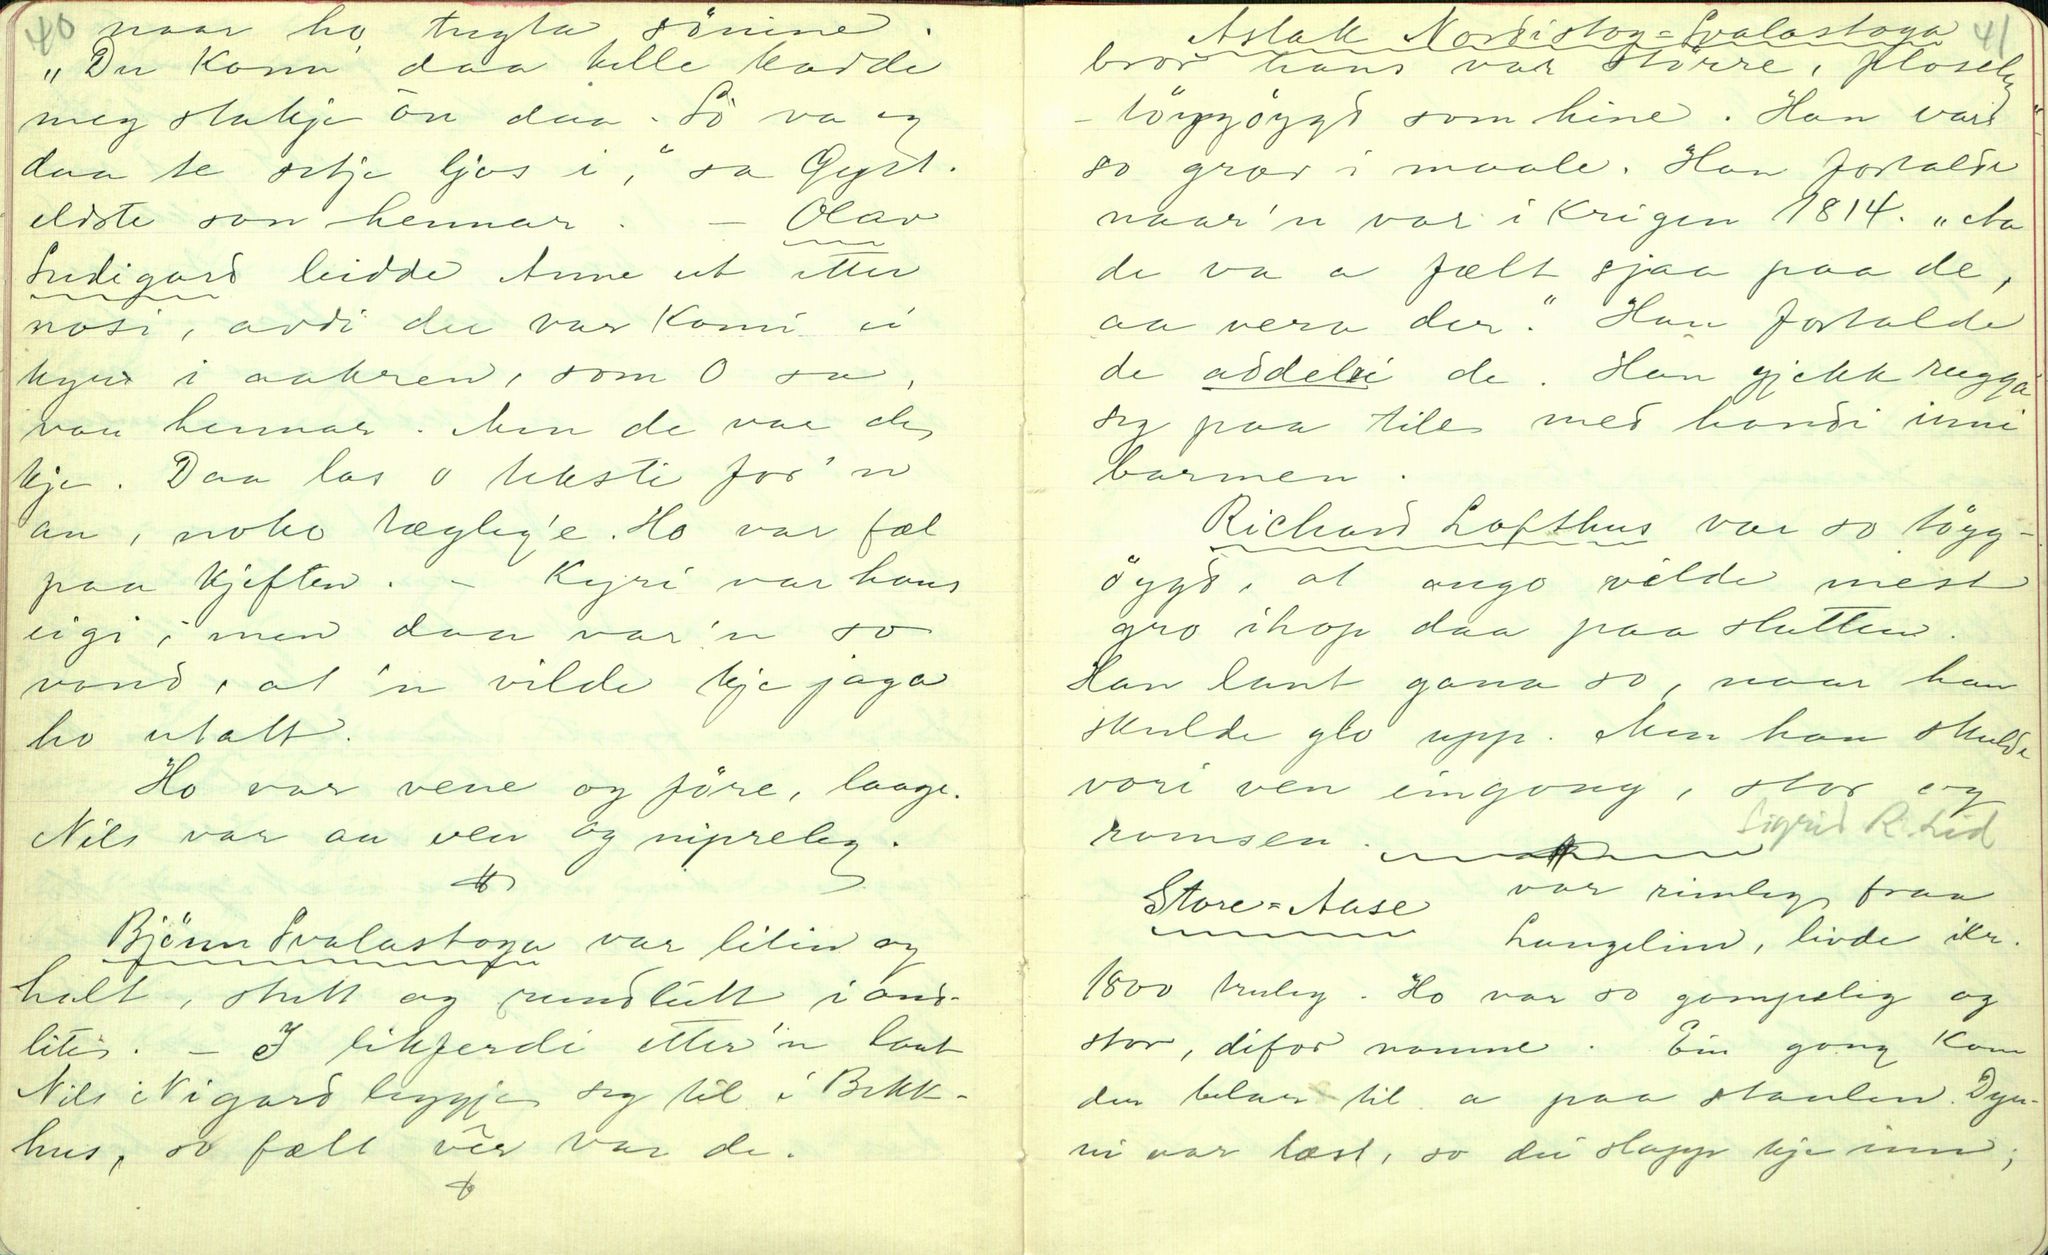 40
naar ho tugta sönine.
„Du Kann daa kelle kadde
meg stakje ön daa. So va eg
daa te setje ljos i," sa Gyst.
eldste son hennar. — Olav
Sudigard leidde Anne ut etter
nosi, avdi der var Komi ei
kyr i aakren, som O sa,
var hennar. Men de var de
kje. Daa las o teksti for 'n
an, noko tægleg'e. Ho var fæl
paa kjeften. — Kyri var hans
eigi, men daa var'n so
vond, at 'n vilde kje jaga
ho utatt.
Ho var vene og före, laage.
Nils var au ven og nipreleg.
Björn Svalastoga var litin og
hælt, stutt og rundlütt i and-
liti. — I likferdi etter'n laut
Nils Nigard leggje seg til i Bekk-
hus, so fælt vêr var de.
41
Aslak Nordistog=Svalastoga
bror hans var större, floseleg
- töggöygd som hine. Han vard
so grov i maale. Han fortalde
naar'n var i Krigen 1814. „Aa
de va a fælt sjaa paa de,
aa vera der." Han fortalde
de addeli de. Han gjekk rugga
seg paa tile med handi inni
barmen.
Richard Lofthus var so tögg-
öygd, at augo vilde mest
gro ihop daa paa slutten.
Han laut gana so, naar han
skulde glo upp. Men han skulde
vori ven eingong, stor og
romsen.
Sigrid R. Lid
Store=Aase var rimeleg fraa
Langelim, livde ikr.
1800 truleg. Ho var so gompeleg og
stor, difor namne. Ein gong Kom
der belar til a paa staulen. Dyn-
ni var læst, so dei slapp kje inn;